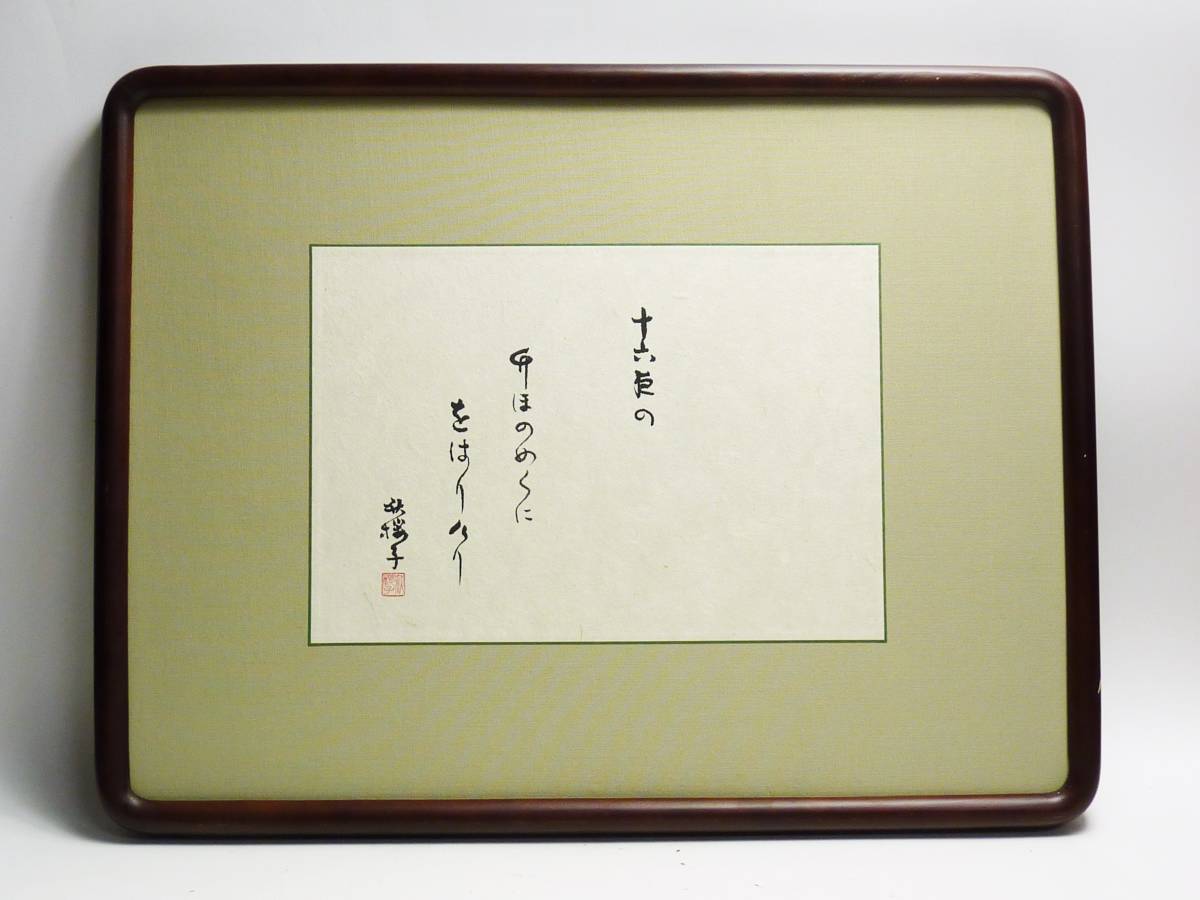 十六夜の
竹ほのめくに
をはりけり
秋櫻子